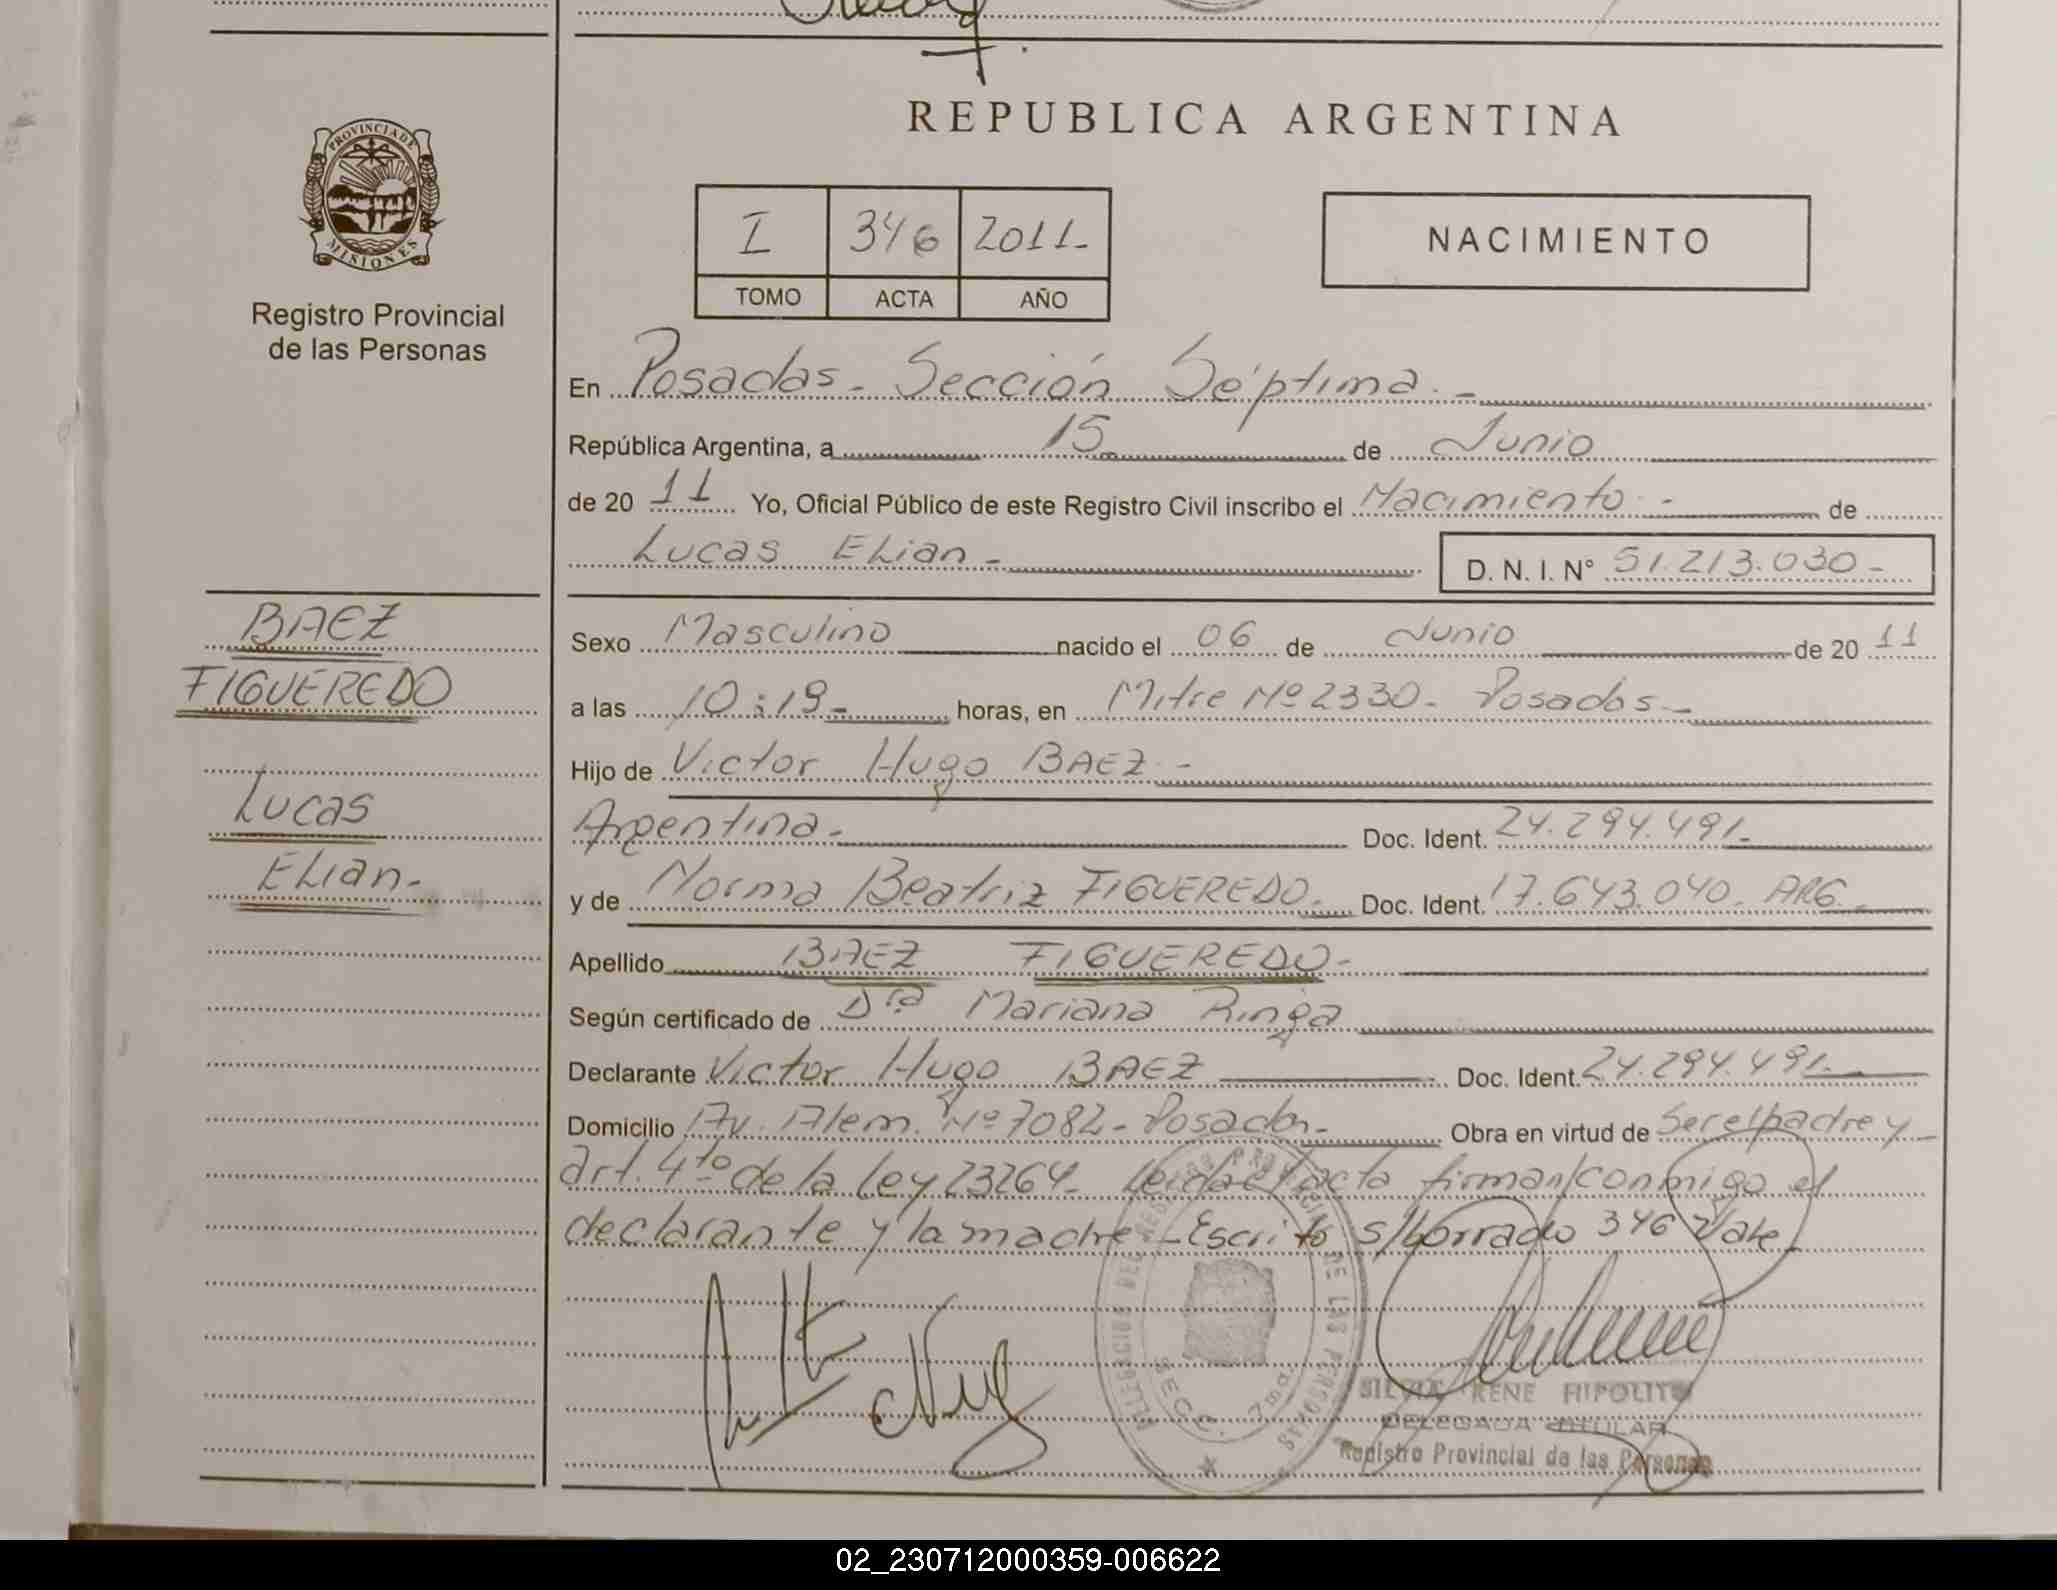 REPUBLICA ARGENTINA
PROVINCIA DE
MISIONES
Registro Provincial
de las Personas
I 346 2011-
TOMO ACTA AÑO
NACIMIENTO
En Posadas - Sección Séptima. -
República Argentina, a 15 de Junio
de 20 11 Yo, Oficial Público de este Registro Civil inscribo el Nacimiento - de
Lucas Elian - D. N. I. N° 51.213.030 -
BAEZ
FIGUEREDO
Lucas
Elian -
Sexo Masculino nacido el 06 de Junio de 20 11
a las 10:19 - horas, en Mitre Nº 2330 - Posadas -
Hijo de Victor Hugo BAEZ -
Argentina - Doc. Ident. 24.294.491 -
y de Norma Beatriz FIGUEREDO. Doc. Ident. 17.643.040 - ARG.
Apellido BAEZ FIGUEREDO -
Según certificado de Dra Mariana Ringa
Declarante Victor Hugo BAEZ Doc. Ident. 24.294.491 -
Domicilio Av. Alem. Nº 7082 - Posadas - Obra en virtud de Ser el padre y
art. 4to de la Ley 23264 - Leida el acta firman conmigo el
declarante y la madre - Escrito s/borrado 346 Vale
DELEGACION DEL REGISTRO PROVINCIAL DE LAS PERSONAS
SECC. 7ma.
SILVIA RENE HIPOLITO
DELEGADA TITULAR
Registro Provincial de las Personas
02_230712000359-006622